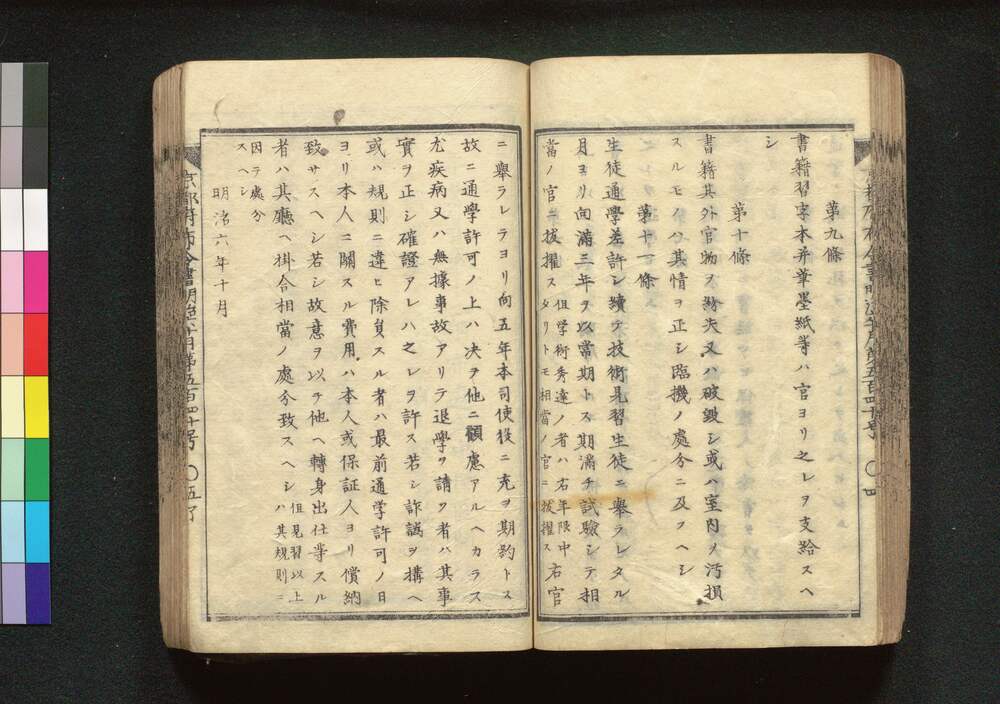 第九條
書籍習字本并筆墨紙等ハ官ヨリ之レヲ支給スヘ
シ
第十條
書籍其外官物ヲ紛失又ハ破毀シ或ハ室内ヲ汚損
スルモノハ其情ヲ正シ臨機ノ處分ニ及フヘシ
第十一條
生徒通學差許シ續テ技術見習生徒ニ擧ラレタル
月ヨリ向滿三年ヲ以當期トス期滿チ試驗シテ相
當ノ官ニ拔擢ス但学術秀達ノ者ハ右年限中
タリトモ相當ノ官ニ拔擢ス右官
四
ニ擧ラレラヨリ向五年本司使役ニ充ヲ期約トス
故ニ通學許可ノ上ハ决ヲ他ニ顧慮アルヘカラス
尤疾病又ハ無據事故アリテ退學ヲ請フ者ハ其事
實ヲ正シ確證アレハ之レヲ許ス若シ詐譌ヲ搆ヘ
或ハ規則ニ違ヒ除身スル者ハ最前通学許可ノ日
ヨリ本人ニ關スル費用ハ本人或保証人ヨリ償納
致サスヘシ若シ故意ヲ以テ他ヘ轉身出仕等スル
者ハ其廳ヘ掛合相當ノ處分致スヘシ但見習以上
ハ其規則ニ
因テ處分
スヘシ
明治六年十月
京都府布令書明治六年十月第五百四十号 〇五丁